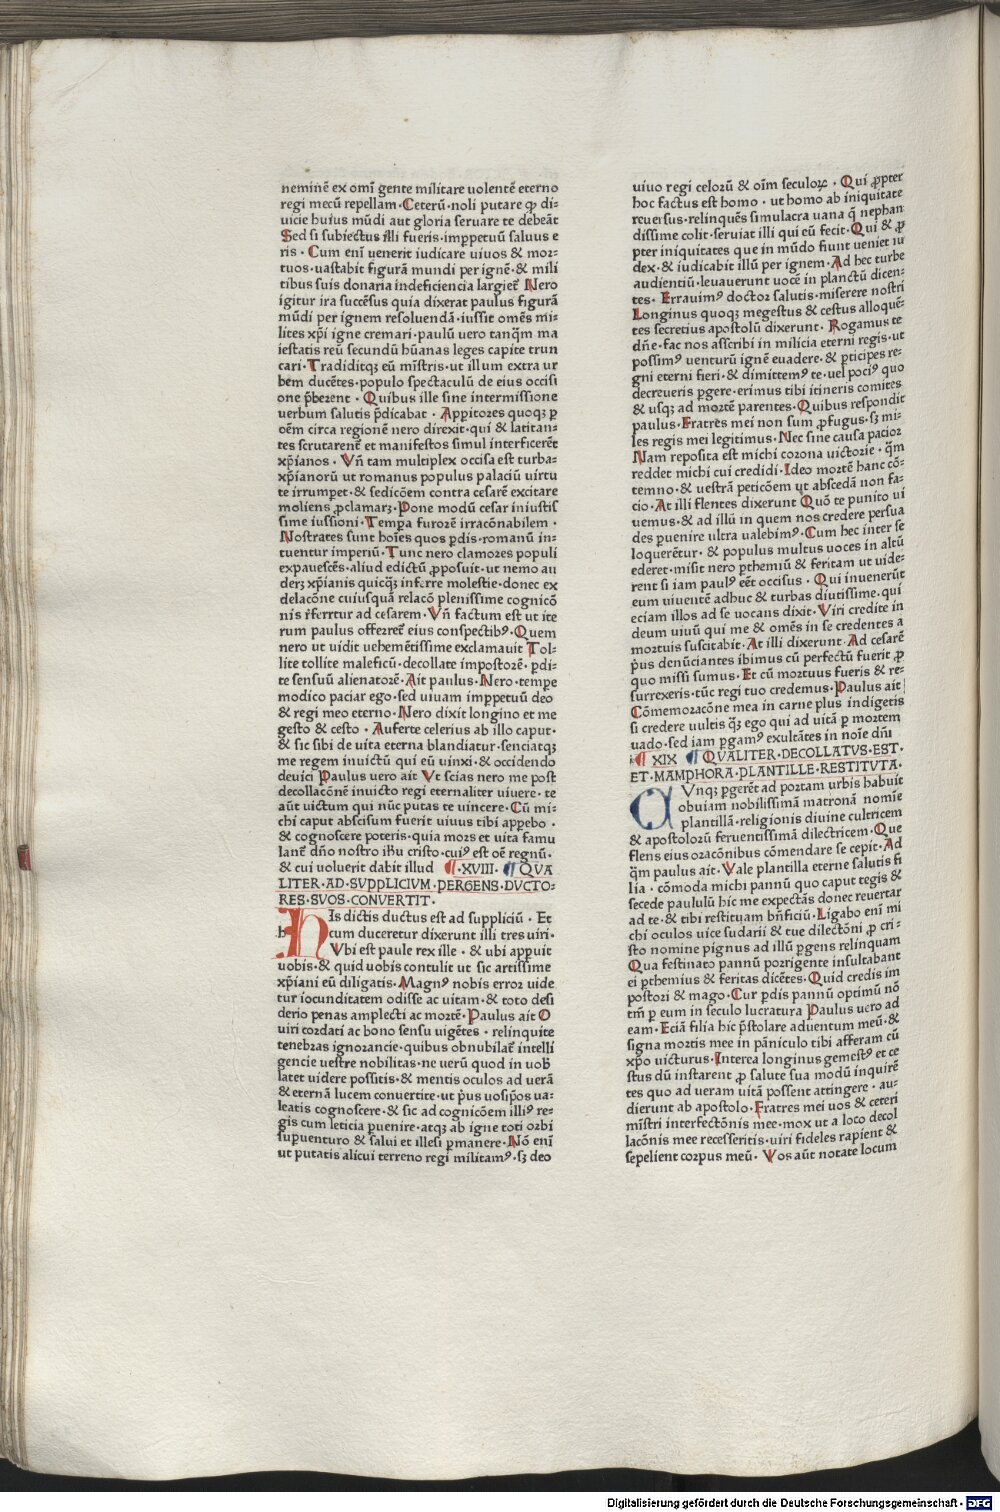 neminē ex omī gente militare uolentē eterno
regi mecū repellam · Ceterū · noli putare ꝙ di⸗
uicie huius mūdi aut gloria seruare te debeāt
Sed si subiectus illi fueris · imꝑpetuū saluus e
ris · Cum enī uenerit iudicare uiuos & mor⸗
tuos · uastabit figurā mundi per ignē · & mili
tibus suis donaria indeficiencia largiet̄ Nero
igitur ira succēsus quia dixerat paulus figurā
mūdi per ignem resoluendā · iussit omēs mi⸗
lites xp̄i igne cremari · paulū uero tanꝗ̄ ma
iestatis reū secundū hūanas leges capite trun
cari · Tradiditqꝫ eū mīstris · ut illum extra ur
bem ducētes · populo spectaculū de eius occisi
one p̄berent · Quibus ille sine intermissione
uerbum salutis p̄dicabat · Appitores quoqꝫ ꝑ
oēm circa regionē nero direxit · qui & latitan⸗
tes scrutarent̄ et manifestos simul interficerēt
xp̄ianos · Vn̄ tam multiplex occisa est turba⸗
xp̄ianorū ut romanus populus palaciū uirtu
te irrumpet · & sedicōem contra cesarē excitare
moliens ꝓclamarꝫ · Pone modū cesar iniustis
sime iussioni · Tempa furorē irracōnabilem ·
Nostrates sunt hoīes quos ꝑdis · romanū in⸗
tuentur imperiū · Tunc nero clamores populi
expauescēs · aliud edictū ꝓposuit · ut nemo au
derꝫ xp̄ianis quicqꝫ inferre molestie · donec ex
delacōne cuiusquā relacō plenissime cognicō
nis r̄ferrtur ad cesarem · Vn̄ factum est ut ite
rum paulus offerret̄ eius conspectibꝰ · Quem
nero ut uidit uehemētissime exclamauit Tol⸗
lite tollite maleficū · decollate impostorē · ꝑdi⸗
te sensuū alienatorē · Ait paulus · Nero · tempe
modico paciar ego · sed uiuam imꝑpetuū deo
& regi meo eterno · Nero dixit longino et me
gesto & cesto · Auferte celerius ab illo caput ·
& sic sibi de uita eterna blandiatur · senciatqꝫ
me regem inuictū qui eū uinxi · & occidendo
deuici Paulus uero ait Vt scias nero me post
decollacōnē inuicto regi eternaliter uiuere · te
aūt uictum qui nūc putas te uincere · Cū mi⸗
chi caput abscisum fuerit uiuus tibi apꝑebo ·
& cognoscere poteris · quia mors et uita famu
lant̄ dn̄o nostro ih̄u cristo · cuiꝰ est oē regnū ·
& cui uoluerit dabit illud ¶ · XVIII · ¶ QVA
LITER · AD · SVPPLICIVM · PERGENS · DVCTO⸗
RES · SVOS · CONVERTIT ·
HIs dictis ductus est ad suppliciū · Et
cum duceretur dixerunt illi tres uiri ·
Vbi est paule rex ille · & ubi apꝑuit
uobis · & quid uobis contulit ut sic artissime
xp̄iani eū diligatis · Magnꝰ nobis error uide
tur iocunditatem odisse ac uitam · & toto desi
derio penas amplecti ac mortē · Paulus ait O
uiri cordati ac bono sensu uigētes · relinquite
tenebras ignorancie · quibus obnubilat̄ intelli
gencie uestre nobilitas · ne uerū quod in uob̄
latet uidere possitis · & mentis oculos ad uerā
& eternā lucem conuertite · ut p̄us uosip̄os ua⸗
leatis cognoscere · & sic ad cognicōem illiꝰ re⸗
gis cum leticia ꝑuenire · atqꝫ ab igne toti orbi
supuenturo & salui et illesi ꝑmanere · Nō enī
ut putatis alicui terreno regi militamꝰ · sꝫ deo
uiuo regi celorū & oīm seculoꝝ · Qui ꝓpter
hoc factus est homo · ut homo ab iniquitate
reuersus · relinquēs simulacra uana q̄ nephan
dissime colit · seruiat illi qui eū fecit · Qui & ꝓ
pter iniquitates que in mūdo fiunt ueniet iu
dex · & iudicabit illū per ignem · Ad hec turbe
audientiū · leuauerunt uocē in planctū dicen⸗
tes · Errauimꝰ doctor salutis · miserere nostri
Longinus quoqꝫ megestus & cestus alloquē⸗
tes secretius apostolū dixerunt · Rogamus te
dn̄e · fac nos asscribi in milicia eterni regis · ut
possimꝰ venturū ignē euadere · & ꝑticipes re⸗
gni eterni fieri · & dimittemꝰ te · uel pociꝰ quo
decreueris ꝑgere · erimus tibi itineris comites
& usqꝫ ad mortē parentes · Quibus respondit
paulus · Fratres mei non sum ꝓfugus · sꝫ mi⸗
les regis mei legitimus · Nec sine causa pacior
Nam reposita est michi corona uictorie · ꝗm
reddet michi cui credidi · Ideo mortē hanc cō⸗
temno · & uestrā peticōem ut abscedā non fa⸗
cio · At illi flentes dixerunt Quō te punito ui
uemus · & ad illū in quem nos credere persua
des ꝑuenire ultra ualebimꝰ · Cum hec inter se
loquerētur · & populus multus uoces in altū
ederet · misit nero ꝑthemiū & feritam ut uide⸗
rent si iam paulꝰ eēt occisus · Qui inuenerūt
eum uiuentē adhuc & turbas diutissime · qui
eciam illos ad se uocans dixit · Viri credite in
deum uiuū qui me & omēs in se credentes a
mortuis suscitabit · At illi dixerunt · Ad cesarē
p̄us denūciantes ibimus cū perfectū fuerit ꝓ
quo missi sumus · Et cū mortuus fueris & re⸗
surrexeris · tūc regi tuo credemus · Paulus ait
Cōmemoracōne mea in carne plus indigetis
si credere uultis qꝫ ego qui ad uitā ꝑ mortem
uado · sed iam ꝑgamꝰ exultātes in noīe dn̄i
¶ XIX ¶ QVALITER · DECOLLATVS · EST ·
ET · MAMPHORA · PLANTILLE · RESTITVTA ·
CVnqꝫ ꝑgerēt ad portam urbis habuit
obuiam nobilissimā matronā nomīe
plantillā · religionis diuine cultricem
& apostolorū feruentissimā dilectricem · Que
flens eius oracōnibus cōmendare se cepit · Ad
ꝗm paulus ait · Vale plantilla eterne salutis fi
lia · cōmoda michi pannū quo caput tegis &
secede paululū hic me expectās donec reuertar
ad te · & tibi restituam bn̄ficiū · Ligabo enī mi
chi oculos uice sudarii & tue dilectōni ꝓ cri⸗
sto nomine pignus ad illū ꝑgens relinquam
Qua festinato pannū porrigente insultabant
ei ꝑthemius & feritas dicētes · Quid credis im
postori & mago · Cur ꝑdis pannū optimū nō
tm̄ ꝑ eum in seculo lucratura Paulus uero ad
eam · Eciā filia hic p̄stolare aduentum meū · &
signa mortis mee in pāniculo tibi afferam cū
xp̄o uicturus · Interea longinus gemestꝰ et ce
stus dū instarent ꝓ salute sua modū inquirē
tes quo ad ueram uitā possent attingere · au⸗
dierunt ab apostolo · Fratres mei uos & ceteri
mīstri interfectōnis mee · mox ut a loco decol
lacōnis mee recesseritis · uiri fideles rapient &
sepelient corpus meū · Vos aūt notate locum
Digitalisierung gefördert durch die Deutsche Forschungsgemeinschaft - DFG